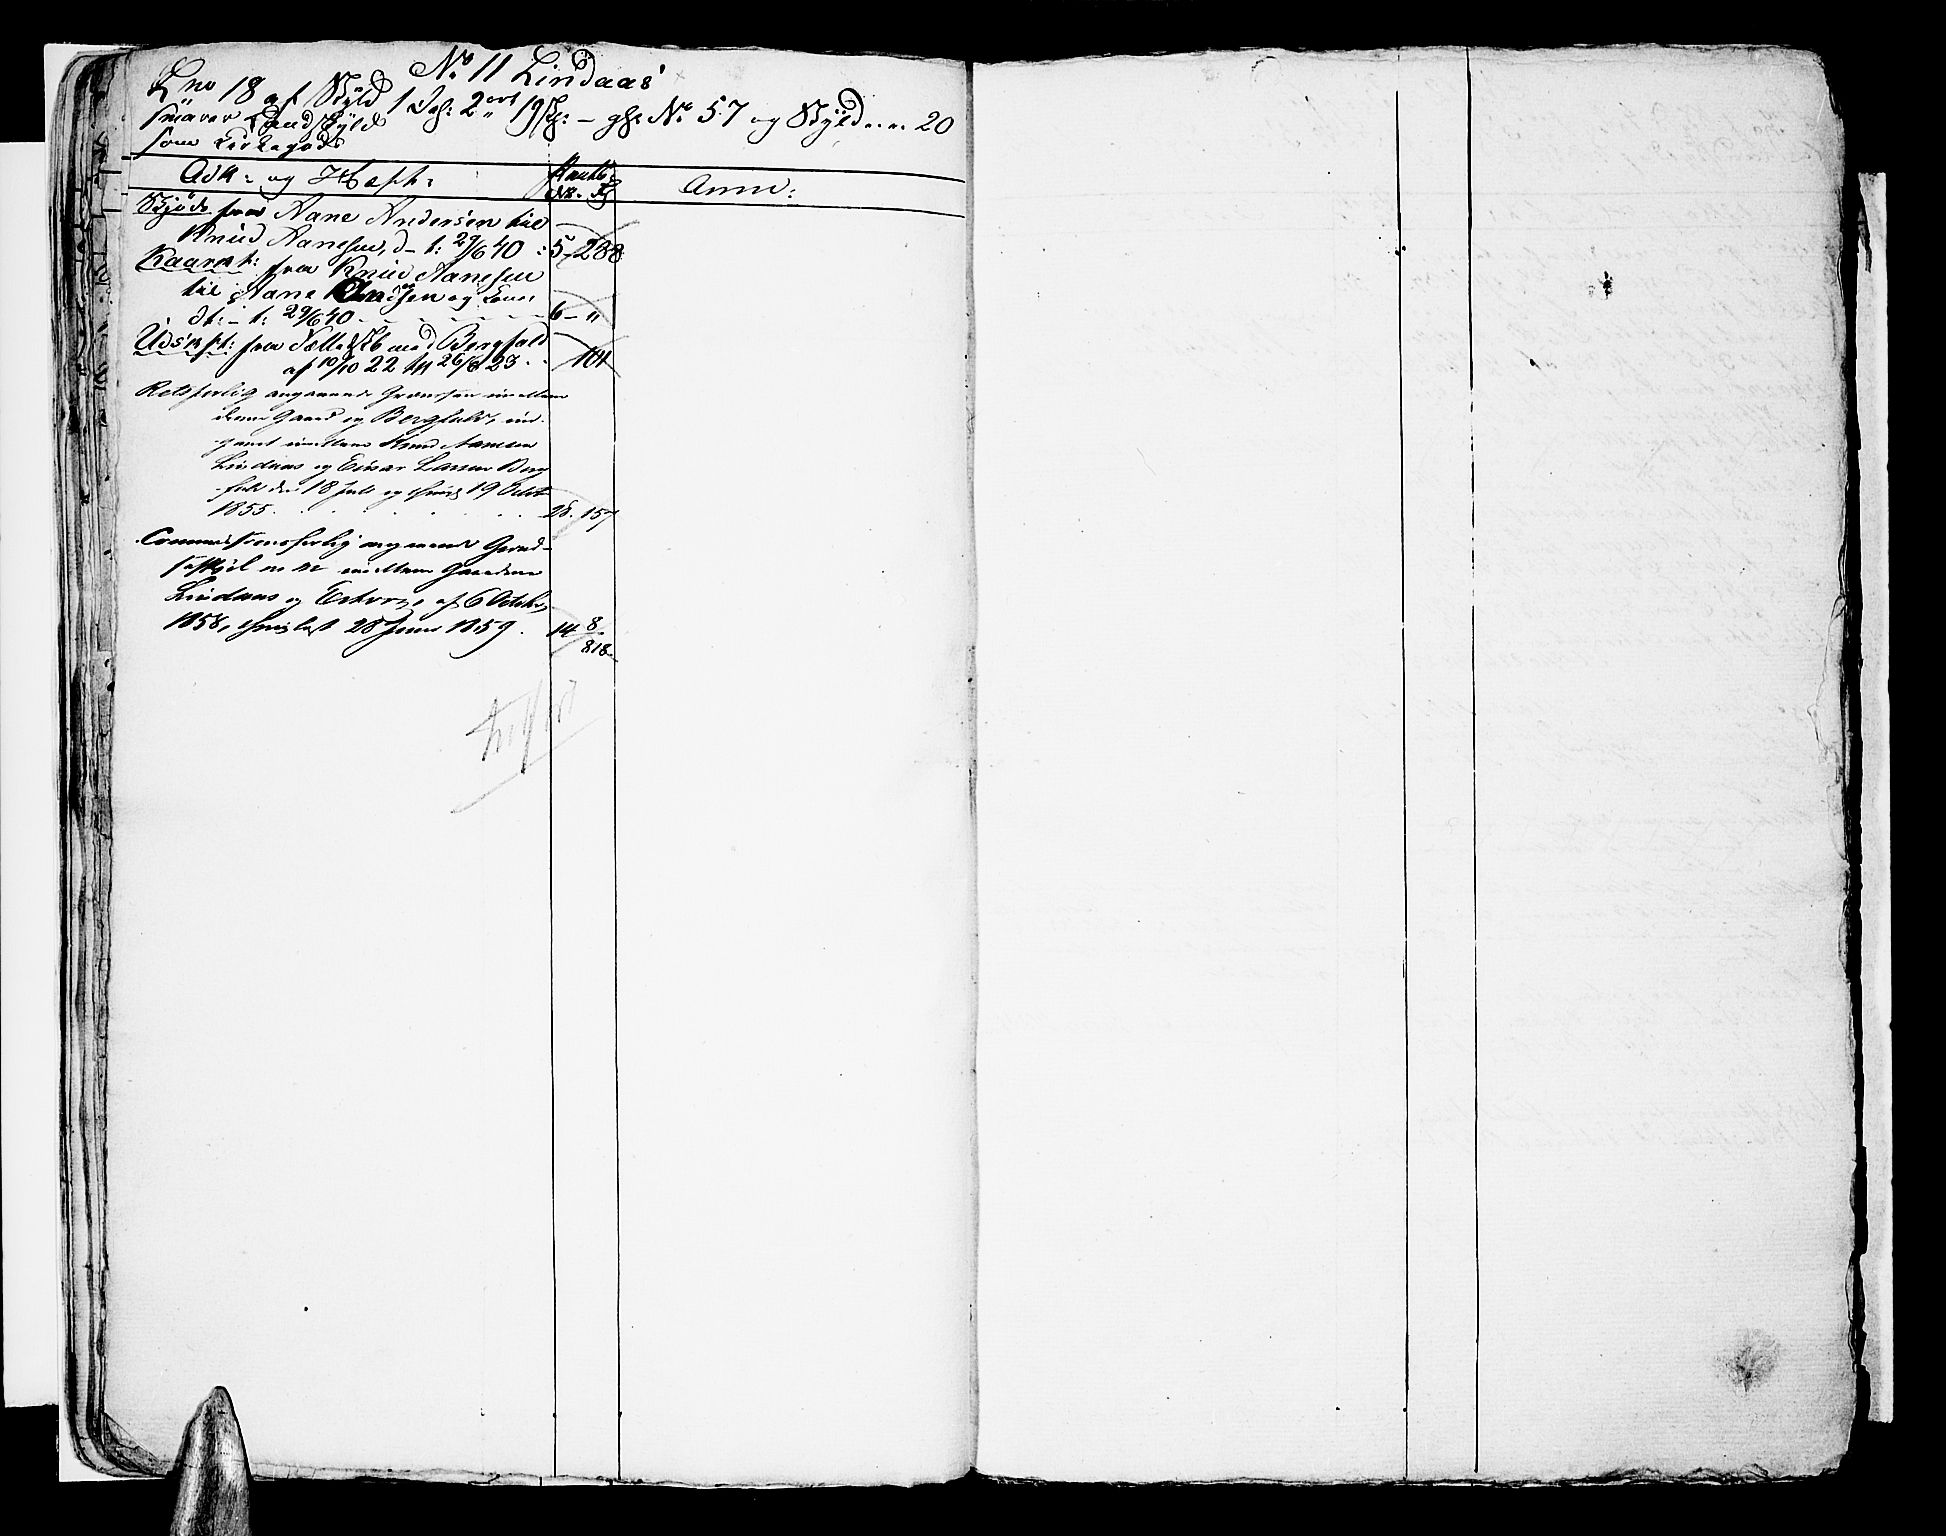 No 11 Lindaas
Lno 18 af Skyld 1 Dlr: 2 ort 19 s: – gl: No 57 og Skyld „ „ 20
svarer Landskyld
som Kirkegods
Adk: og Hæft:
Anm:
Skjöde fra Aane Andersen til
Knud Aanesen, d– t: 29/6 40 : 5 – 288
Kaarkt: fra Knud Aanesen
til Aane Andersen og Kone
dt: – t: 29/6 40 – – – 6 – "
Udskft: fra Fælledsk med Bergfald
af 10/10 22 26/6 23 . . 104
Retsforlig angaaende Grændsen mellem
denne Gaard og Bergfald, ind-
gaaet mellem Knud Aanesen
Lindaas og Einar Larsen Berg
fald den 18 Juli og 19 Octbr
1855 . . . . . . 28. 157
Commissionsforlig angaaende Grænd-
seskjel mellem Gaardene
Lindaas og af 6 October
1858, thinglæst 28 Juni 1859 . 14 8/818